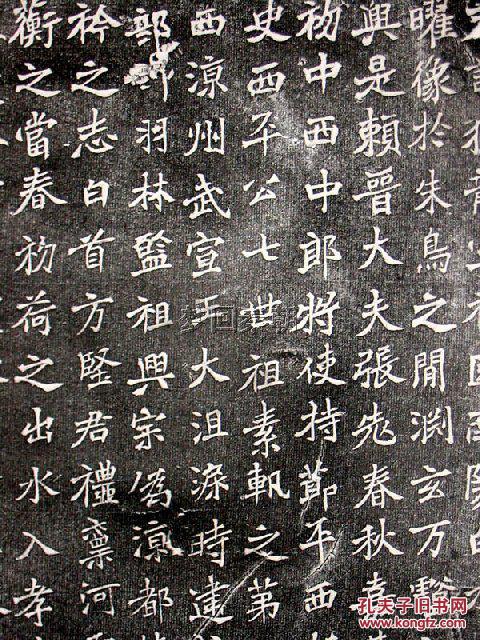 曜像於朱鳥之閒渕玄万壑
興是賴晉大夫張老春秋嘉
初中西中郎將使持節平西
史西平公七世祖素軌之第
西涼州武宣王大沮渠時建
部羽林監祖興宗偽涼都
衿之志白首方堅君禮稟河
蘅之當春初荷之出水入孝
孔夫子旧书网